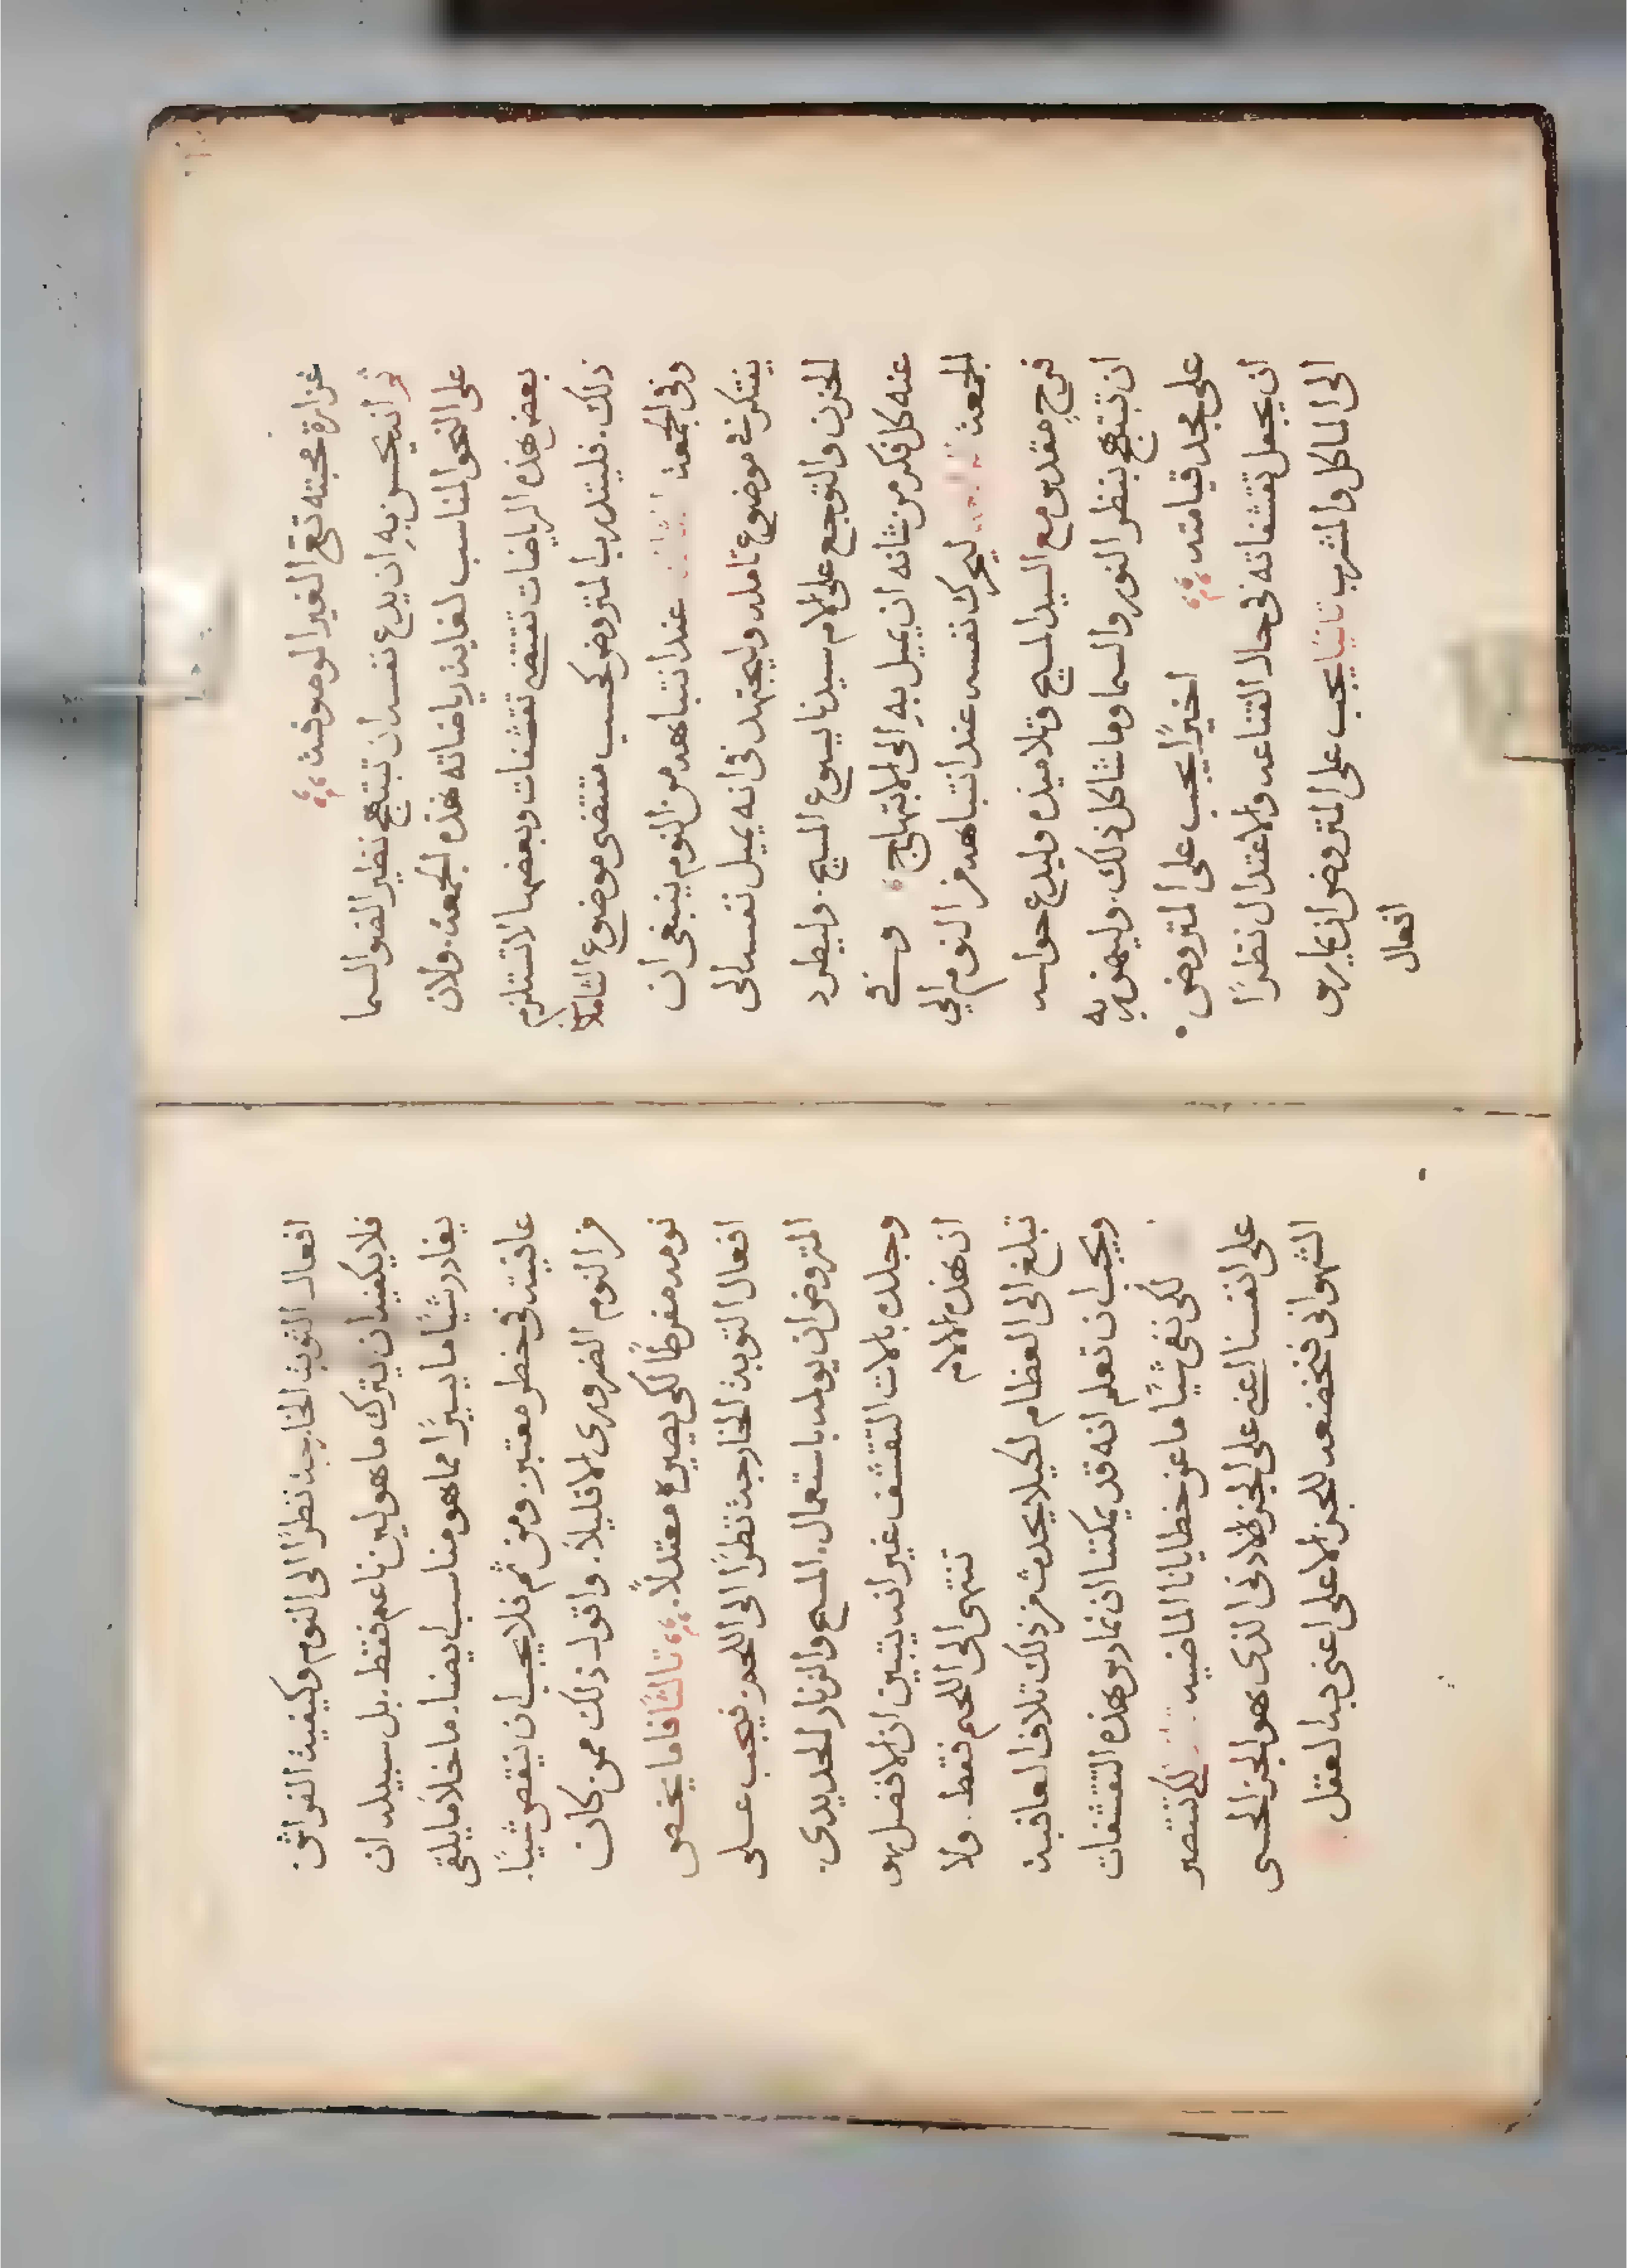 غزارة محبته تعالى الغير الموصوفة
ثم انه يحسن به ان يدع نفسه ان تبتهج نظير الضو السما
على النحو المناسب لغاية رياضاته هذه الجمعة. ولان
بعض هذه الرياضات تقتضي تقشفات وبعضها لا تستلزم
ذلك. فليتدرب المتروض كحسب مقتضى موضوع التاملات
وفي الجمعة عند انتباهه من النوم ينبغي ان
يفتكر في موضوع تامله وليجتهد في انه يميل نفسه الى
الحزن والتوجع على الام سيدنا يسوع المسيح. وليطرد
عنه كل فكر من شانه ان يميل به الى الابتهاج وفي
الجمعة ليحرك نفسه عند انتباهه من النوم الي
فرح مقدس مع السيد المسيح وتلاميذه وليدع حواسه
ان تبتهج بنظر النور والسما وما شاكل ذلك. وليهضن به
على مجد قيامته اخيرًا يجب على المتروض
ان يجعل تقشفاته في حال القناعه والاعتدال نظرًا
الى الماكل والمشرب ثانيًا يجب على المتروض ان يمارس
افعال
افعال التوبة الخارجة نظرًا الى النوم وكيفية الفراش.
فلا يكفيه ان يترك ما هو لين ناعم فقط. بل سبيله ان
يغادر شيًا ما يسيرًا مما هو مناسب ايضا. ما خلا ما يلقى
عافيته في خطر معتبر ومن ثم فلا يجب ان ينقص شيًا.
من النوم الضروري الا قليلاً. واقول ذلك ممن كان
نومه مفرطًا لكي يصيره معتدلاً. ثالثًا فاما يخص
افعال التوبة الخارجة نظرًا الى اللحد فيجب على
المتروض ان يولمه باستعمال. المسح والزنار الحديدي.
وجلده بالات التقشف غير انه يتبين ان الافضل هو
ان هذه الالام تنتهى الى اللحم فقط. ولا
تبلغ الى العظام لكيلا يحدث من ذلك تلاف العافية
ويجب ان تعلم انه قد يمكننا ان نمارس هذه التقشفات
لكى نفى شيًا ما عن خطايانا الماضيه لكى ننتصر
على انفسنا اعنى على الجز الادنى الذي هو الجز الحسى
الشهوانى فنخضعه للجز الاعلى اعنى به العقل.